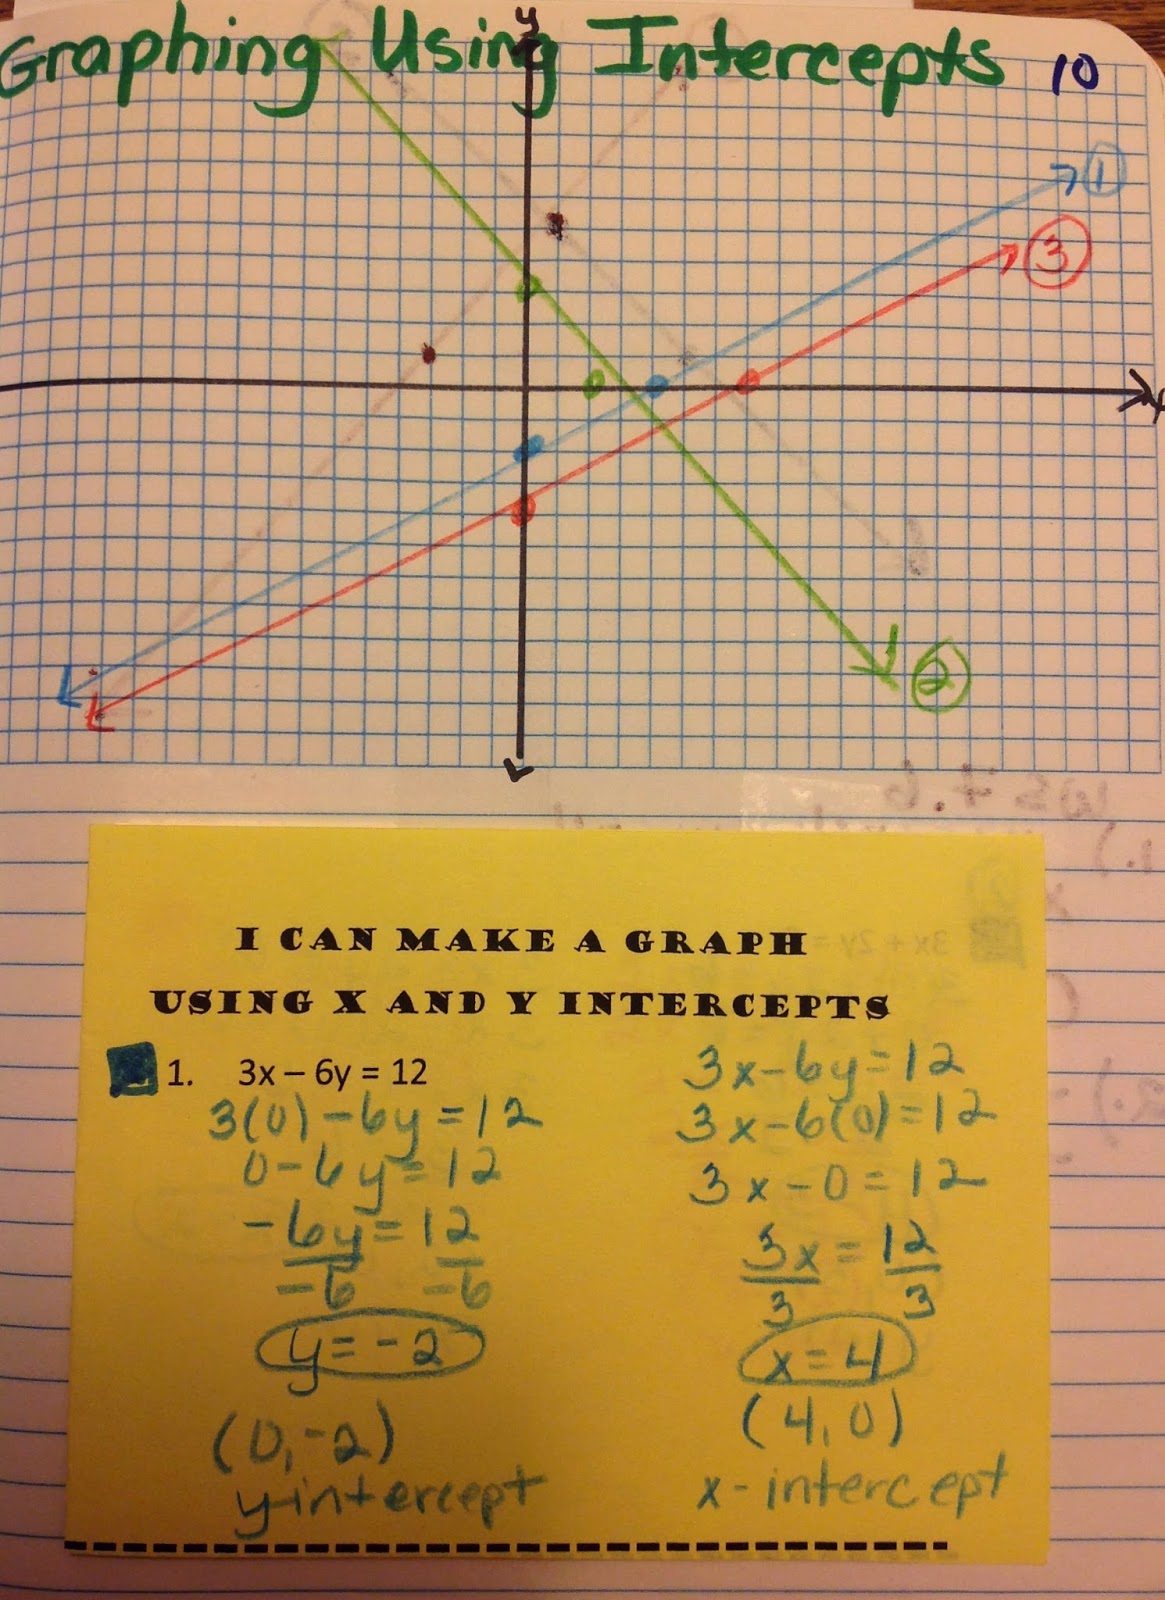 y
Graphing Using Intercepts 10
1
3
x
2
I CAN MAKE A GRAPH
USING X AND Y INTERCEPTS
1. 3x – 6y = 12
3(0) - 6y = 12
0 - 6y = 12
-6y = 12
-6 -6
y = -2
(0, -2)
y-intercept
3x - 6y = 12
3x - 6(0) = 12
3x - 0 = 12
3x = 12
3 3
x = 4
(4, 0)
x-intercept